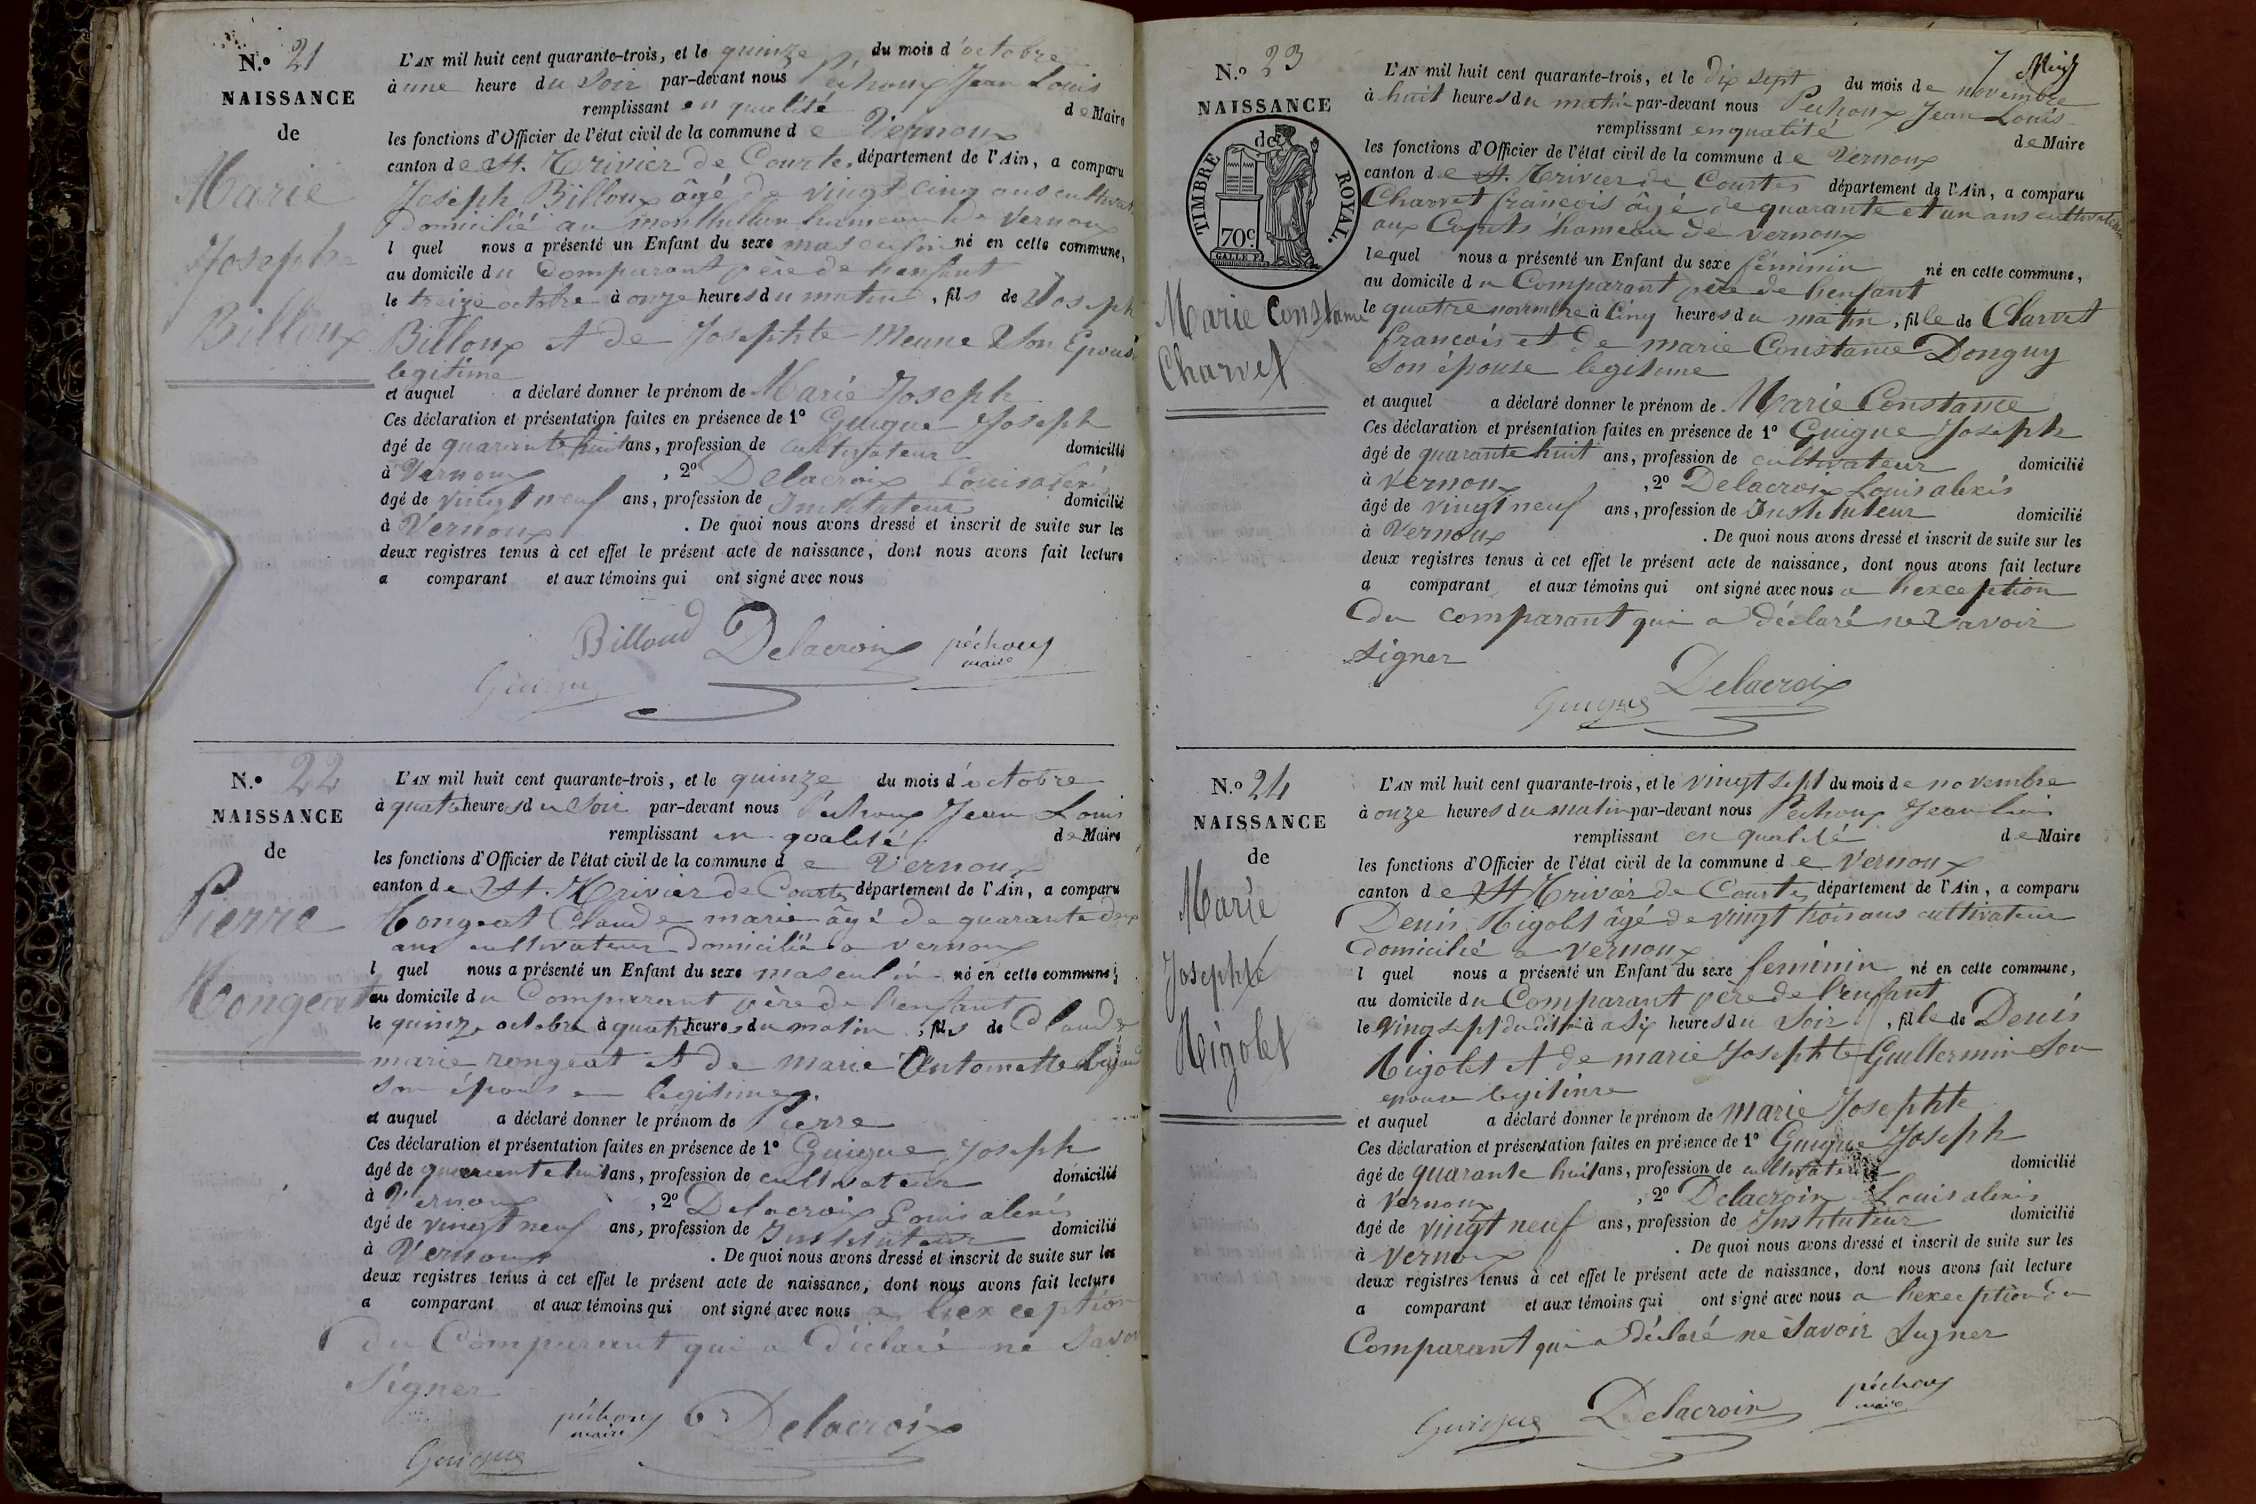 N.° 21
NAISSANCE
de
Marie
Joseph
Billoux
L'AN mil huit cent quarante-trois, et le quinze du mois d'octobre
à une heure du Soir par-devant nous Péchoux Jean Louis
remplissant en qualité de Maire
les fonctions d'Officier de l'état civil de la commune de Vernoux
canton de St. Trivier de Courtes, département de l'Ain, a comparu
Joseph Billoux âgé de vingt cinq ans cultivat
Domicilié au hameau de Vernoux
l quel nous a présenté un Enfant du sexe masculin né en cette commune,
au domicile du Comparant père de l'enfant
le treize octobre à onze heures du matin, fils de Joseph
Billoux et de Josephte Meune Son Epouse
legitime
et auquel a déclaré donner le prénom de Marie Joseph
Ces déclaration et présentation faites en présence de 1° Guigue Joseph
âgé de quarante huit ans, profession de cultivateur domicilié
à Vernoux, 2° Delacroix Louis alexis
âgé de vingt neuf ans, profession de Instituteur domicilié
à Vernoux. De quoi nous avons dressé et inscrit de suite sur les
deux registres tenus à cet effet le présent acte de naissance, dont nous avons fait lecture
a comparant et aux témoins qui ont signé avec nous
Billoud Delacroix péchoux
maire
Guigue
N.° 22
NAISSANCE
de
Pierre
Rongeat
L'AN mil huit cent quarante-trois, et le quinze du mois d'octobre
à quatre heures du Soir par-devant nous Péchoux Jean Louis
remplissant en qoalité de Maire
les fonctions d'Officier de l'état civil de la commune de Vernoux
canton de St. Trivier de Courtes, département de l'Ain, a comparu
Rongeat Claude marie âgé de quarante deux
ans cultivateur Domicilié a vernoux
l quel nous a présenté un Enfant du sexe masculin né en cette commune,
au domicile du Comparant père de l'enfant
le quinze octobre à quatre heures du matin, fils de Claude
marie rongeat et de marie Antoinette
son épouse legitime
et auquel a déclaré donner le prénom de Pierre
Ces déclaration et présentation faites en présence de 1° Guigue Joseph
âgé de quarante huit ans, profession de cultivateur domicilié
à Vernoux, 2° Delacroix Louis alexis
âgé de vingt neuf ans, profession de Instituteur domicilié
à Vernoux. De quoi nous avons dressé et inscrit de suite sur les
deux registres tenus à cet effet le présent acte de naissance, dont nous avons fait lecture
a comparant et aux témoins qui ont signé avec nous a l'exception
du Comparant qui a déclaré ne Savoir
Signer
péchoux Delacroix
maire
Guigue
N.° 23
NAISSANCE
de
TIMBRE ROYAL.
70c
Marie Constance
Charvet
L'AN mil huit cent quarante-trois, et le dix sept du mois de novembre
à huit heures du matin par-devant nous Péchoux Jean Louis
remplissant en qualité de Maire
les fonctions d'Officier de l'état civil de la commune de Vernoux
canton de St. Trivier de Courtes département de l'Ain, a comparu
Charvet françois âgé de quarante et un ans cultivateur
aux hameau de vernoux
lequel nous a présenté un Enfant du sexe féminin né en cette commune,
au domicile du Comparant père de l'enfant
le quatre novembre à Cinq heures du matin, fille de Charvet
françois et de marie Constance Donguy
Son épouse legitime
et auquel a déclaré donner le prénom de Marie Constance
Ces déclaration et présentation faites en présence de 1° Guigue Joseph
âgé de quarante huit ans, profession de cultivateur domicilié
à vernoux, 2° Delacroix Louis alexis
âgé de vingt neuf ans, profession de Instituteur domicilié
à Vernoux. De quoi nous avons dressé et inscrit de suite sur les
deux registres tenus à cet effet le présent acte de naissance, dont nous avons fait lecture
a comparant et aux témoins qui ont signé avec nous a l'exception
du comparant qui a déclaré ne savoir
signer
Guigue Delacroix
N.° 24
NAISSANCE
de
Marie
Josephte
Rigolet
L'AN mil huit cent quarante-trois, et le vingt sept du mois de novembre
à onze heures du matin par-devant nous Péchoux Jean Louis
remplissant en qualité de Maire
les fonctions d'Officier de l'état civil de la commune de Vernoux
canton de St Trivier de Courtes, département de l'Ain, a comparu
Denis Rigolet âgé de vingt trois ans cultivateur
domicilié a vernoux
l quel nous a présenté un Enfant du sexe feminin né en cette commune,
au domicile du Comparant père de l'enfant
le vingt sept du dit à six heures du Soir, fille de Denis
Rigolet et de marie Josephte Guillermin Son
epouse legitime
et auquel a déclaré donner le prénom de marie Josephte
Ces déclaration et présentation faites en présence de 1° Guigue Joseph
âgé de quarante huit ans, profession de cultivateur domicilié
à Vernoux, 2° Delacroix Louis alexis
âgé de vingt neuf ans, profession de Instituteur domicilié
à vernoux. De quoi nous avons dressé et inscrit de suite sur les
deux registres tenus à cet effet le présent acte de naissance, dont nous avons fait lecture
a comparant et aux témoins qui ont signé avec nous a l'exception du
Comparant qui a déclaré ne Savoir Signer
Guigue Delacroix péchoux
maire